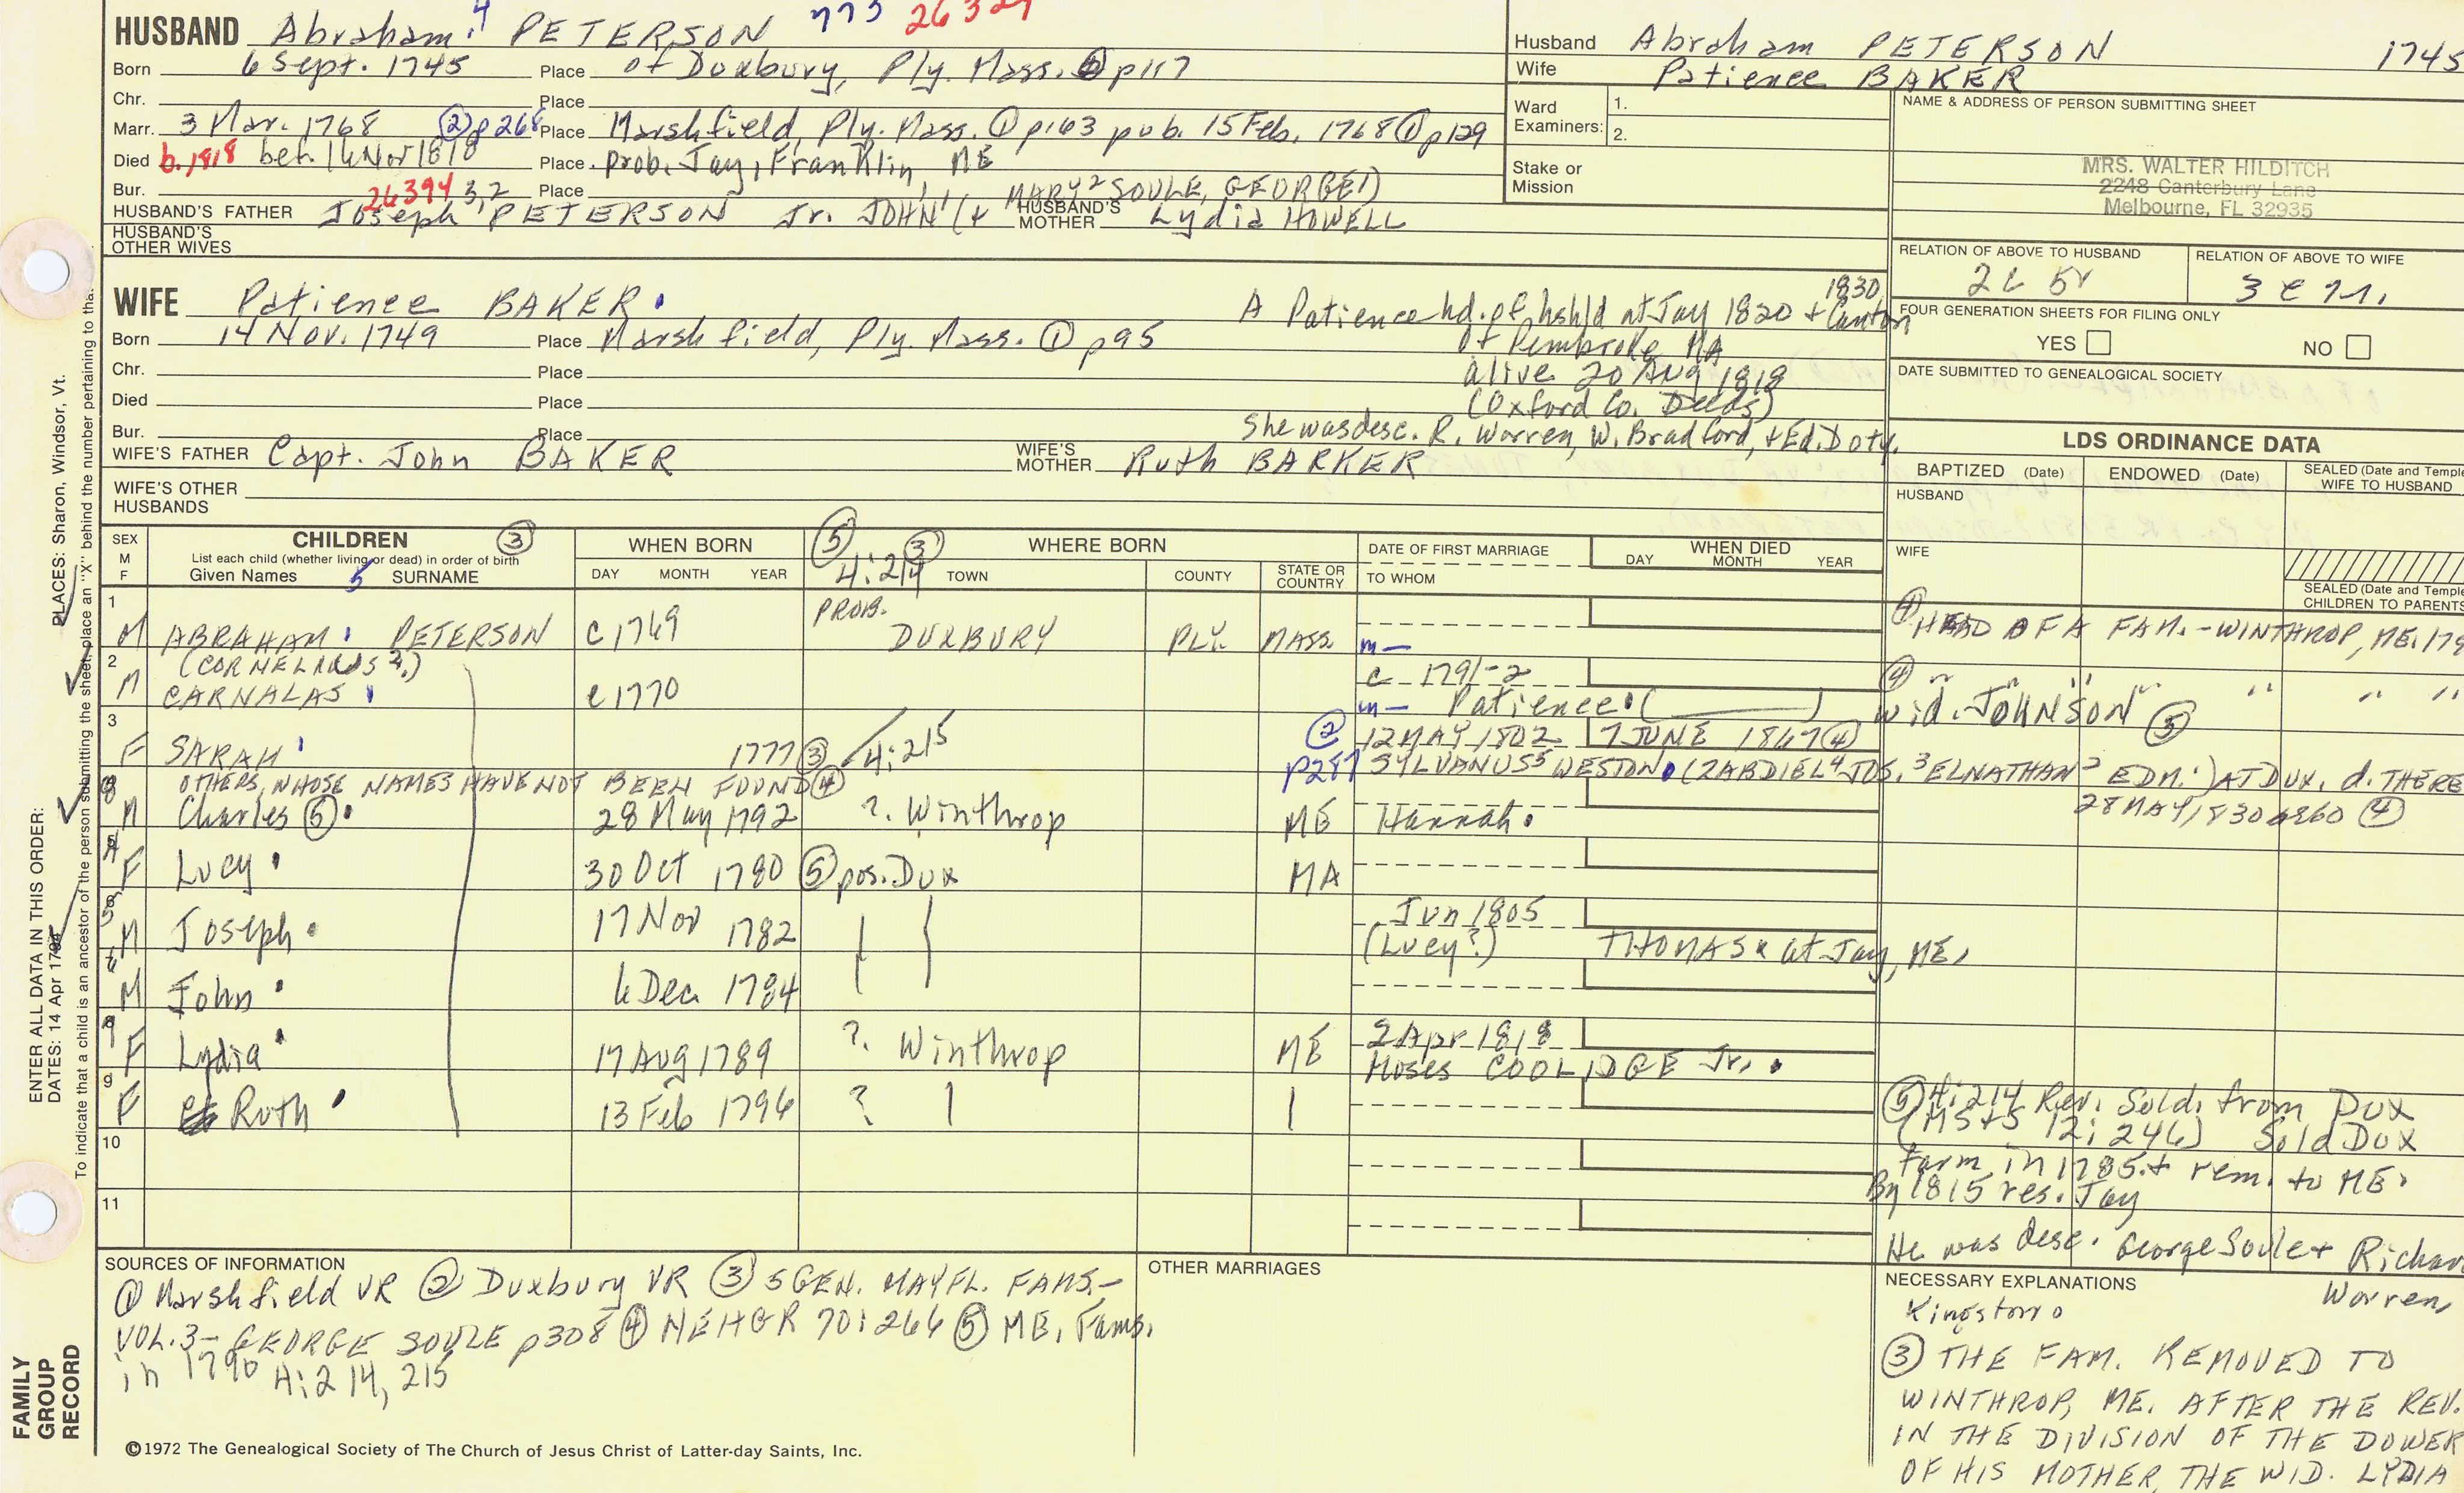 HUSBAND Abraham 4 PETERSON 773 26327
Born 6 Sept. 1745 Place of Duxbury, Ply. Mass. p117
Chr. Place
Marr. 3 Mar. 1768 ② p268 Place Marshfield, Ply. Mass. ① p163 pub. 15 Feb. 1768 ① p129
Died b. 1818 bef. 16 Nov 1818 Place prob. Jay, Franklin, ME
Bur. Place
26394 3,2 MARY 2 SOULE, GEORGE 1)
HUSBAND'S FATHER Joseph PETERSON Jr. JOHN 1 (+ HUSBAND'S MOTHER Lydia HOWELL
HUSBAND'S OTHER WIVES
Husband Abraham PETERSON 1745
Wife Patience BAKER
Ward Examiners: 1.
2.
Stake or Mission
NAME & ADDRESS OF PERSON SUBMITTING SHEET
MRS. WALTER HILDITCH
2248 Canterbury Lane
Melbourne, FL 32935
RELATION OF ABOVE TO HUSBAND
2c 5r
RELATION OF ABOVE TO WIFE
FOUR GENERATION SHEETS FOR FILING ONLY
YES NO
DATE SUBMITTED TO GENEALOGICAL SOCIETY
WIFE Patience BAKER
Born 14 Nov. 1749 Place Marshfield, Ply. Mass. ① p95
Chr. Place
Died Place
Bur. Place
A Patience hd. of hshld at Jay 1820 + Canton 1830
of Pembroke MA
alive 20 Aug 1818
(Oxford Co. Deeds)
She was desc. R. Warren, W. Bradford, + Ed. Doty.
WIFE'S FATHER Capt. John BAKER WIFE'S MOTHER Ruth BARKER
WIFE'S OTHER HUSBANDS
LDS ORDINANCE DATA
BAPTIZED (Date) ENDOWED (Date) SEALED (Date and Temple) WIFE TO HUSBAND
HUSBAND
WIFE
SEALED (Date and Temple) CHILDREN TO PARENTS
SEX M F CHILDREN ③
List each child (whether living or dead) in order of birth
Given Names 5 SURNAME
WHEN BORN
DAY MONTH YEAR
⑤ ③ WHERE BORN
4:214 TOWN COUNTY STATE OR COUNTRY
DATE OF FIRST MARRIAGE
TO WHOM
WHEN DIED
DAY MONTH YEAR
1 M ABRAHAM PETERSON c 1769 PROB. DUXBURY PLY. MASS. m—
④ HEAD OF A FAM. - WINTHROP, ME. 179
2 M (CORNELIUS ?)
CARNALAS c 1770 c 1791-2
m— Patience ( )
④ " " " " " "
wid. JOHNSON ⑤
3 F SARAH 1777 ③ 4:215 ② 12 MAY 1802 7 JUNE 1867 ④
p287 SYLVANUS 5 WESTON (ZABDIEL 4 JOS. 3 ELNATHAN 2 EDM. 1) AT DUX. d. THERE
28 MAY 1830 ④
OTHERS, WHOSE NAMES HAVE NOT BEEN FOUND ④
M Charles ⑤ 28 May 1792 ? Winthrop ME Hannah
F Lucy 30 Oct 1780 ⑤ pos. Dux MA
M Joseph 17 Nov 1782 Jun 1805
(Lucy?) THOMAS at Jay, ME.
M John 6 Dec. 1784
F Lydia 17 Aug 1789 ? Winthrop ME 2 Apr 1818
Moses COOLIDGE Jr.
9 F Ruth 13 Feb 1796 ?
10
11
⑤ 4:214 Rev. Sold. from Dux
(MS+S 12:246) Sold Dux
farm in 1785 + rem. to ME.
By 1815 res. Jay
He was desc. George Soule + Richard
Warren,
SOURCES OF INFORMATION
① Marshfield VR ② Duxbury VR ③ 5 GEN. MAYFL. FAMS.-
VOL. 3- GEORGE SOULE p308 ④ NEHGR 70:266 ⑤ ME. Fams.
in 1790 4:214, 215
OTHER MARRIAGES
NECESSARY EXPLANATIONS
Kingston
③ THE FAM. REMOVED TO
WINTHROP, ME. AFTER THE REV.
IN THE DIVISION OF THE DOWER
OF HIS MOTHER, THE WID. LYDIA
©1972 The Genealogical Society of The Church of Jesus Christ of Latter-day Saints, Inc.
FAMILY GROUP RECORD
ENTER ALL DATA IN THIS ORDER:
DATES: 14 Apr 1794
PLACES: Sharon, Windsor, Vt.
To indicate that a child is an ancestor of the person submitting the sheet, place an "X" behind the number pertaining to that